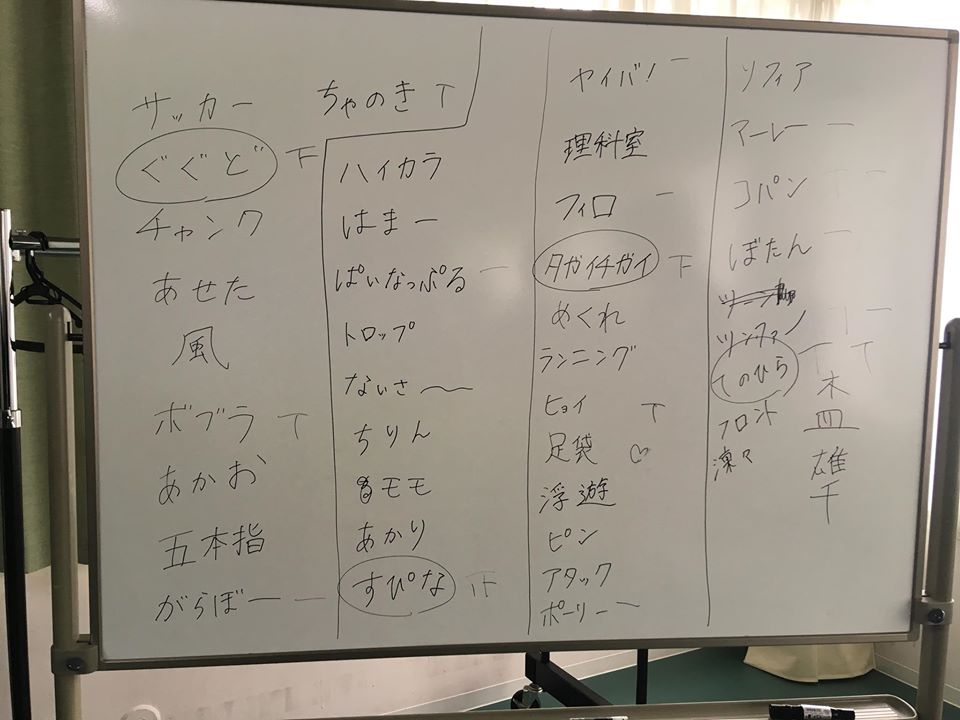 サッカー
ぐぐど
チャンク
あせた
風
ボブラ
あかお
五本指
がらぼー
ちゃのき
ハイカラ
はまー
ぱいなっぷる
トロップ
ないさ〜
ちりん
モモ
あかり
すぴな
ヤイバ!
理科室
フィロ
タガイチガイ
めくれ
ランニング
ヒョイ
足袋 ♡
浮遊
ピン
アタック
ポーリー
ソフィア
マーレー
コパン
ぼたん
ツンファン
てのひら
フロント
凍々
木
皿
雄
千